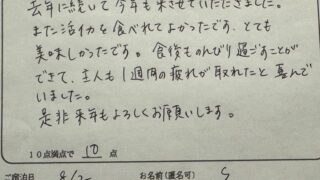 去年に続いて今年も来させていただきました。
また活イカを食べれてよかったです。とても
美味しかったです。食後ものんびり過ごすことが
できて、主人も1週間の疲れが取れたと喜んで
いました。
是非来年もよろしくお願いします。
10点満点で 10 点
ご宿泊日 8/2 お名前(匿名可) S